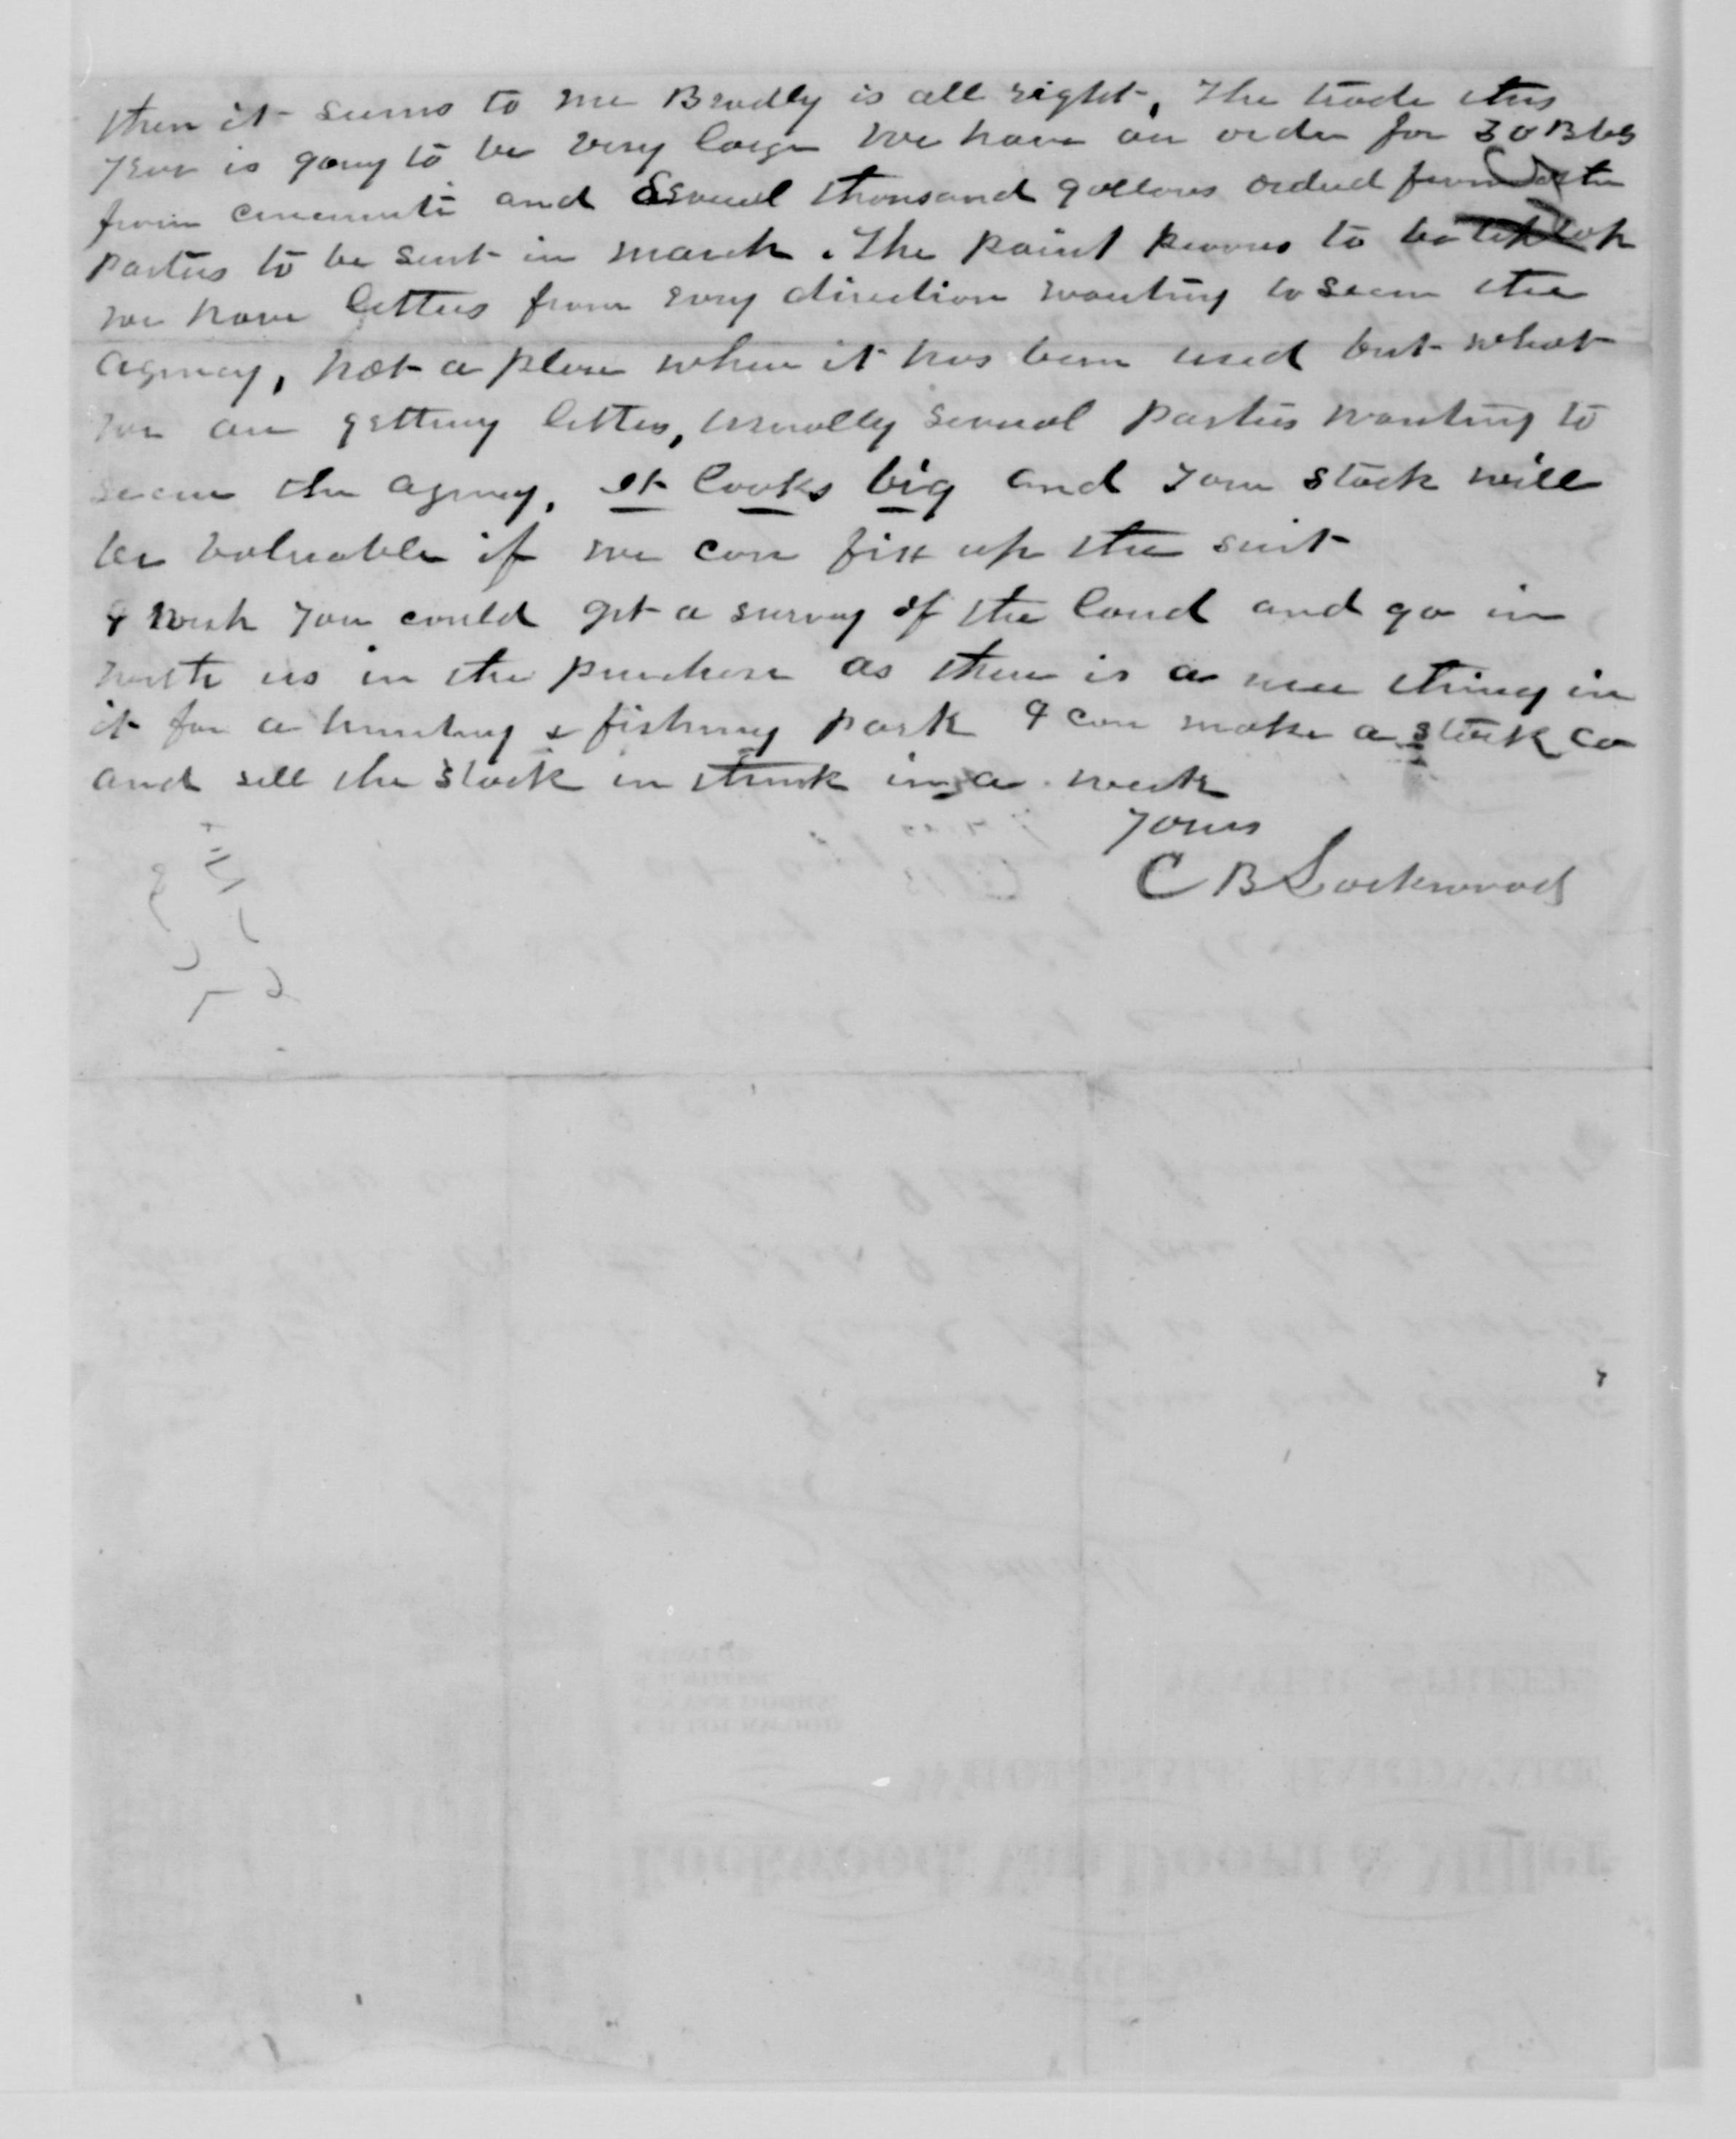 then it seems to me Bradly is all right, The trade this
year is going to be very large we have an order for 30 Bbls
from cincinnati and Several thousand gallons ordered from other
parties to be sent in march. The paint proves to be tip top
we have letters from every direction wanting to secure the
agency, not a place where it has been used but what
we are getting letters, usually several parties wanting to
secure the agency, it looks big and your stock will
be valuable if we can fix up the suit
I wish you could get a survey of the land and go in
with us in the purchase as there is a nice thing in
it for a hunting & fishing park I can make a stock co
and sell the stock in think in a week
Yours
C B Lockwood